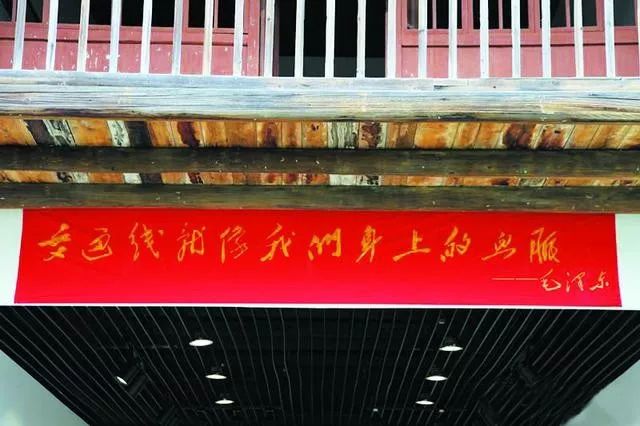 交通线就像我们身上的血脉
——毛泽东